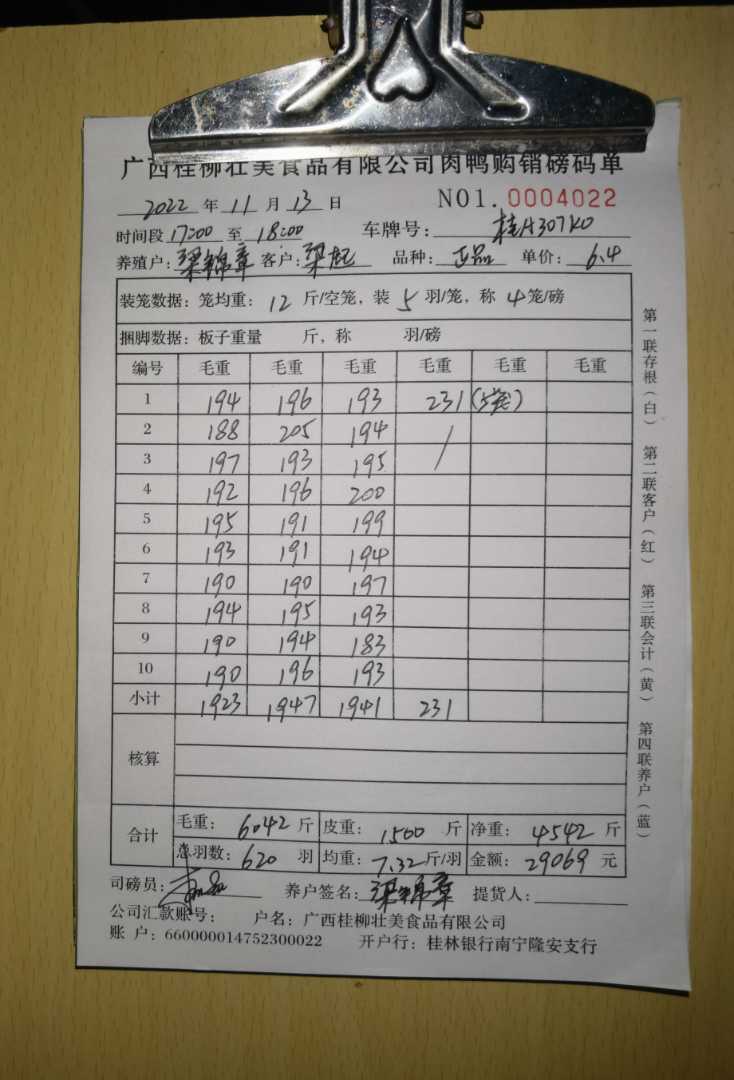 广西桂柳壮美食品有限公司肉鸭购销磅码单
2022 年 11 月 13 日 NO1. 0004022
时间段 17:00 至 18:00 车牌号: 桂A307K0
养殖户: 梁锦章 客户: 梁 品种: 正品 单价: 6.4
装笼数据: 笼均重: 12 斤/空笼, 装 5 羽/笼, 称 4 笼/磅
捆脚数据: 板子重量 斤, 称 羽/磅
编号 毛重 毛重 毛重 毛重 毛重 毛重
1 194 196 193 231 (5笼)
2 188 205 194 /
3 197 193 195 /
4 192 196 200
5 195 191 199
6 193 191 194
7 190 190 197
8 194 195 193
9 190 194 183
10 190 196 193
小计 1923 1947 1941 231
核算
合计 毛重: 6042 斤 皮重: 1500 斤 净重: 4542 斤
总羽数: 620 羽 均重: 7.32 斤/羽 金额: 29069 元
司磅员: 养户签名: 梁锦章 提货人:
公司汇款账号: 户名: 广西桂柳壮美食品有限公司
账 户: 660000014752300022 开户行: 桂林银行南宁隆安支行
第一联存根(白) 第二联客户(红) 第三联会计(黄) 第四联养户(蓝)